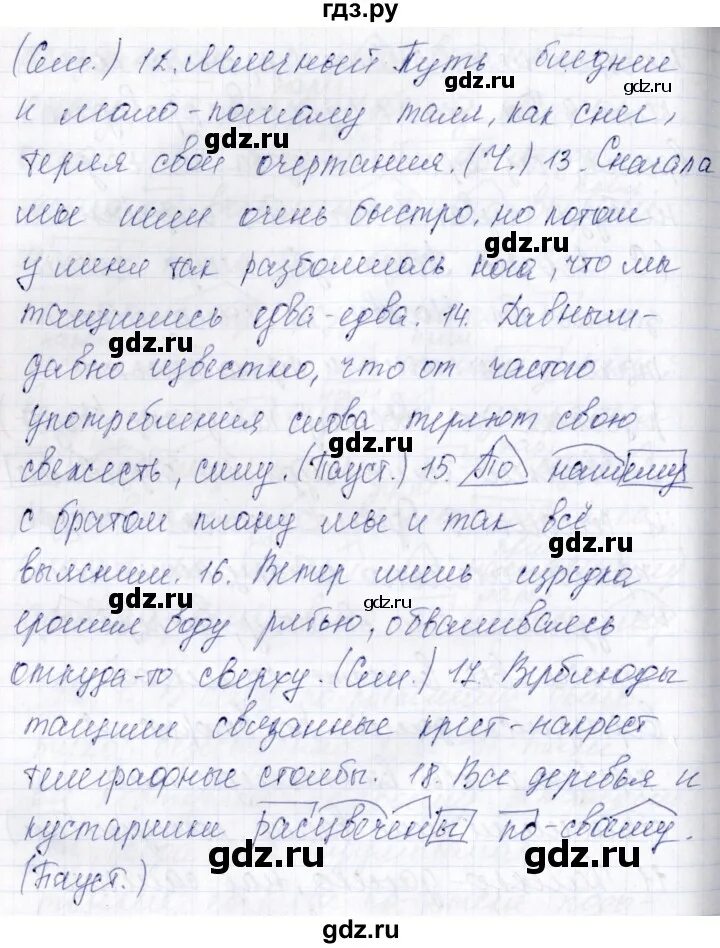 гдз.ру
(Сем.) 12. Млечный Путь бледнел
и мало-помалу таял, как снег,
теряя свои очертания. (Ч.) 13. Сначала
мы шли очень быстро, но потом
у меня так разболелась нога, что мы
тащились едва-едва. 14. Давным-
давно известно, что от частого
употребления слова теряют свою
свежесть, силу. (Пауст.) 15. По нашему
с братом плану мы и так всё
выясним. 16. Ветер лишь изредка
ерошил воду рябью, обваливаясь
откуда-то сверху. (Сем.) 17. Верблюды
тащили связанные крест-накрест
телеграфные столбы. 18. Все деревья и
кустарники расцвечены по-своему.
(Пауст.)
gdz.ru
gdz.ru
gdz.ru
gdz.ru
gdz.ru
gdz.ru
gdz.ru
gdz.ru
gdz.ru
gdz.ru
gdz.ru
gdz.ru
gdz.ru